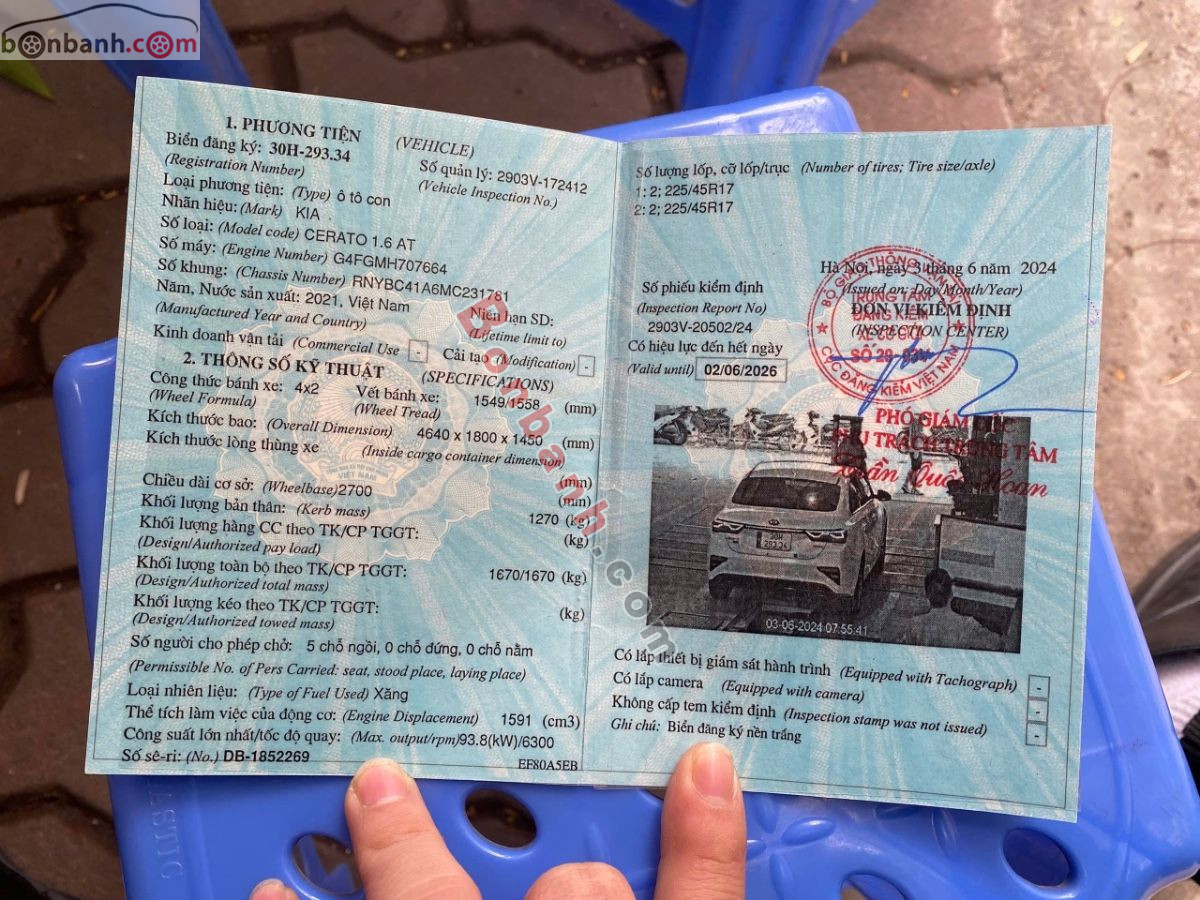 bonbanh.com
1. PHƯƠNG TIỆN (VEHICLE)
Biển đăng ký: 30H-293.34
(Registration Number)
Số quản lý: 2903V-172412
(Vehicle Inspection No.)
Loại phương tiện: (Type) ô tô con
Nhãn hiệu: (Mark) KIA
Số loại: (Model code) CERATO 1.6 AT
Số máy: (Engine Number) G4FGMH707664
Số khung: (Chassis Number) RNYBC41A6MC231781
Năm, Nước sản xuất: 2021, Việt Nam
(Manufactured Year and Country)
Niên hạn SD:
(Lifetime limit to)
Kinh doanh vận tải (Commercial Use -
Cải tạo (Modification) -
2. THÔNG SỐ KỸ THUẬT (SPECIFICATIONS)
Công thức bánh xe: 4x2
(Wheel Formula)
Vết bánh xe: 1549/1558 (mm)
(Wheel Tread)
Kích thước bao: (Overall Dimension) 4640 x 1800 x 1450 (mm)
Kích thước lòng thùng xe (Inside cargo container dimension
(mm)
Chiều dài cơ sở: (Wheelbase)2700 (mm)
Khối lượng bản thân: (Kerb mass) 1270 (kg)
Khối lượng hàng CC theo TK/CP TGGT: (kg)
(Design/Authorized pay load)
Khối lượng toàn bộ theo TK/CP TGGT: 1670/1670 (kg)
(Design/Authorized total mass)
Khối lượng kéo theo TK/CP TGGT: (kg)
(Design/Authorized towed mass)
Số người cho phép chở: 5 chỗ ngồi, 0 chỗ đứng, 0 chỗ nằm
(Permissible No. of Pers Carried: seat, stood place, laying place)
Loại nhiên liệu: (Type of Fuel Used) Xăng
Thể tích làm việc của động cơ: (Engine Displacement) 1591 (cm3)
Công suất lớn nhất/tốc độ quay: (Max. output/rpm)93.8(kW)/6300
Số sê-ri: (No.) DB-1852269
EF80A5EB
Số lượng lốp, cỡ lốp/trục (Number of tires; Tire size/axle)
1: 2; 225/45R17
2: 2; 225/45R17
Hà Nội, ngày 3 tháng 6 năm 2024
(Issued on: Day/Month/Year)
Số phiếu kiểm định
(Inspection Report No)
2903V-20502/24
ĐƠN VỊ KIỂM ĐỊNH
(INSPECTION CENTER)
Có hiệu lực đến hết ngày
(Valid until) 02/06/2026
BỘ GIAO THÔNG VẬN TẢI
TRUNG TÂM
ĐĂNG KIỂM
XE CƠ GIỚI
SỐ 29-03V
CỤC ĐĂNG KIỂM VIỆT NAM
PHÓ GIÁM ĐỐC
PHỤ TRÁCH TRUNG TÂM
Trần Quốc Hoan
30H
293.34
03-06-2024 07:55:41
Có lắp thiết bị giám sát hành trình (Equipped with Tachograph) -
Có lắp camera (Equipped with camera) -
Không cấp tem kiểm định (Inspection stamp was not issued) -
Ghi chú: Biển đăng ký nền trắng
Bonbanh.com
VIỆT NAM